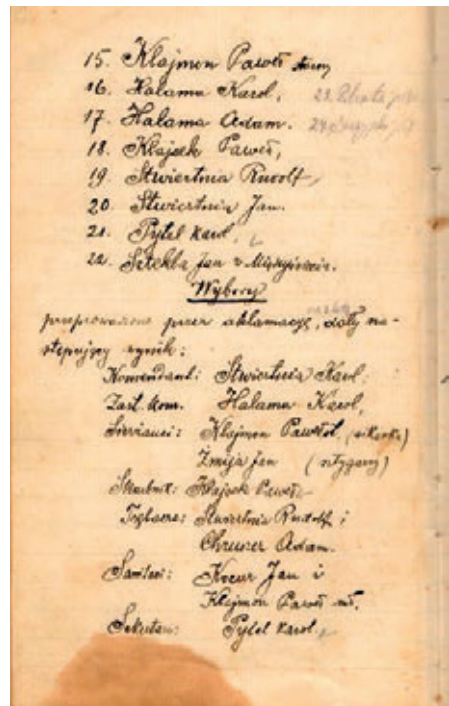 15. Klajmon Paweł stary
16. Halama Karol,
17. Halama Adam.
18. Klajsek Paweł,
19. Stwiertnia Rudolf,
20. Stwiertnia Jan.
21. Pytel Karol,
22. Sztekla Jan z
Wybory
przeprowadzone przez aklamację, dały na-
stępujący wynik:
Komendant: Stwiertnia Karol,
Zast. kom. Halama Karol,
Sierżanci: Klajmon Paweł, (sikawka)
Żmija Jan
Skarbnik: Klajsek Paweł
Trębacze: Stwiertnia Rudolf i
Adam.
Kocur Jan i
Klajmon Paweł mł.
Sekretarz: Pytel Karol,